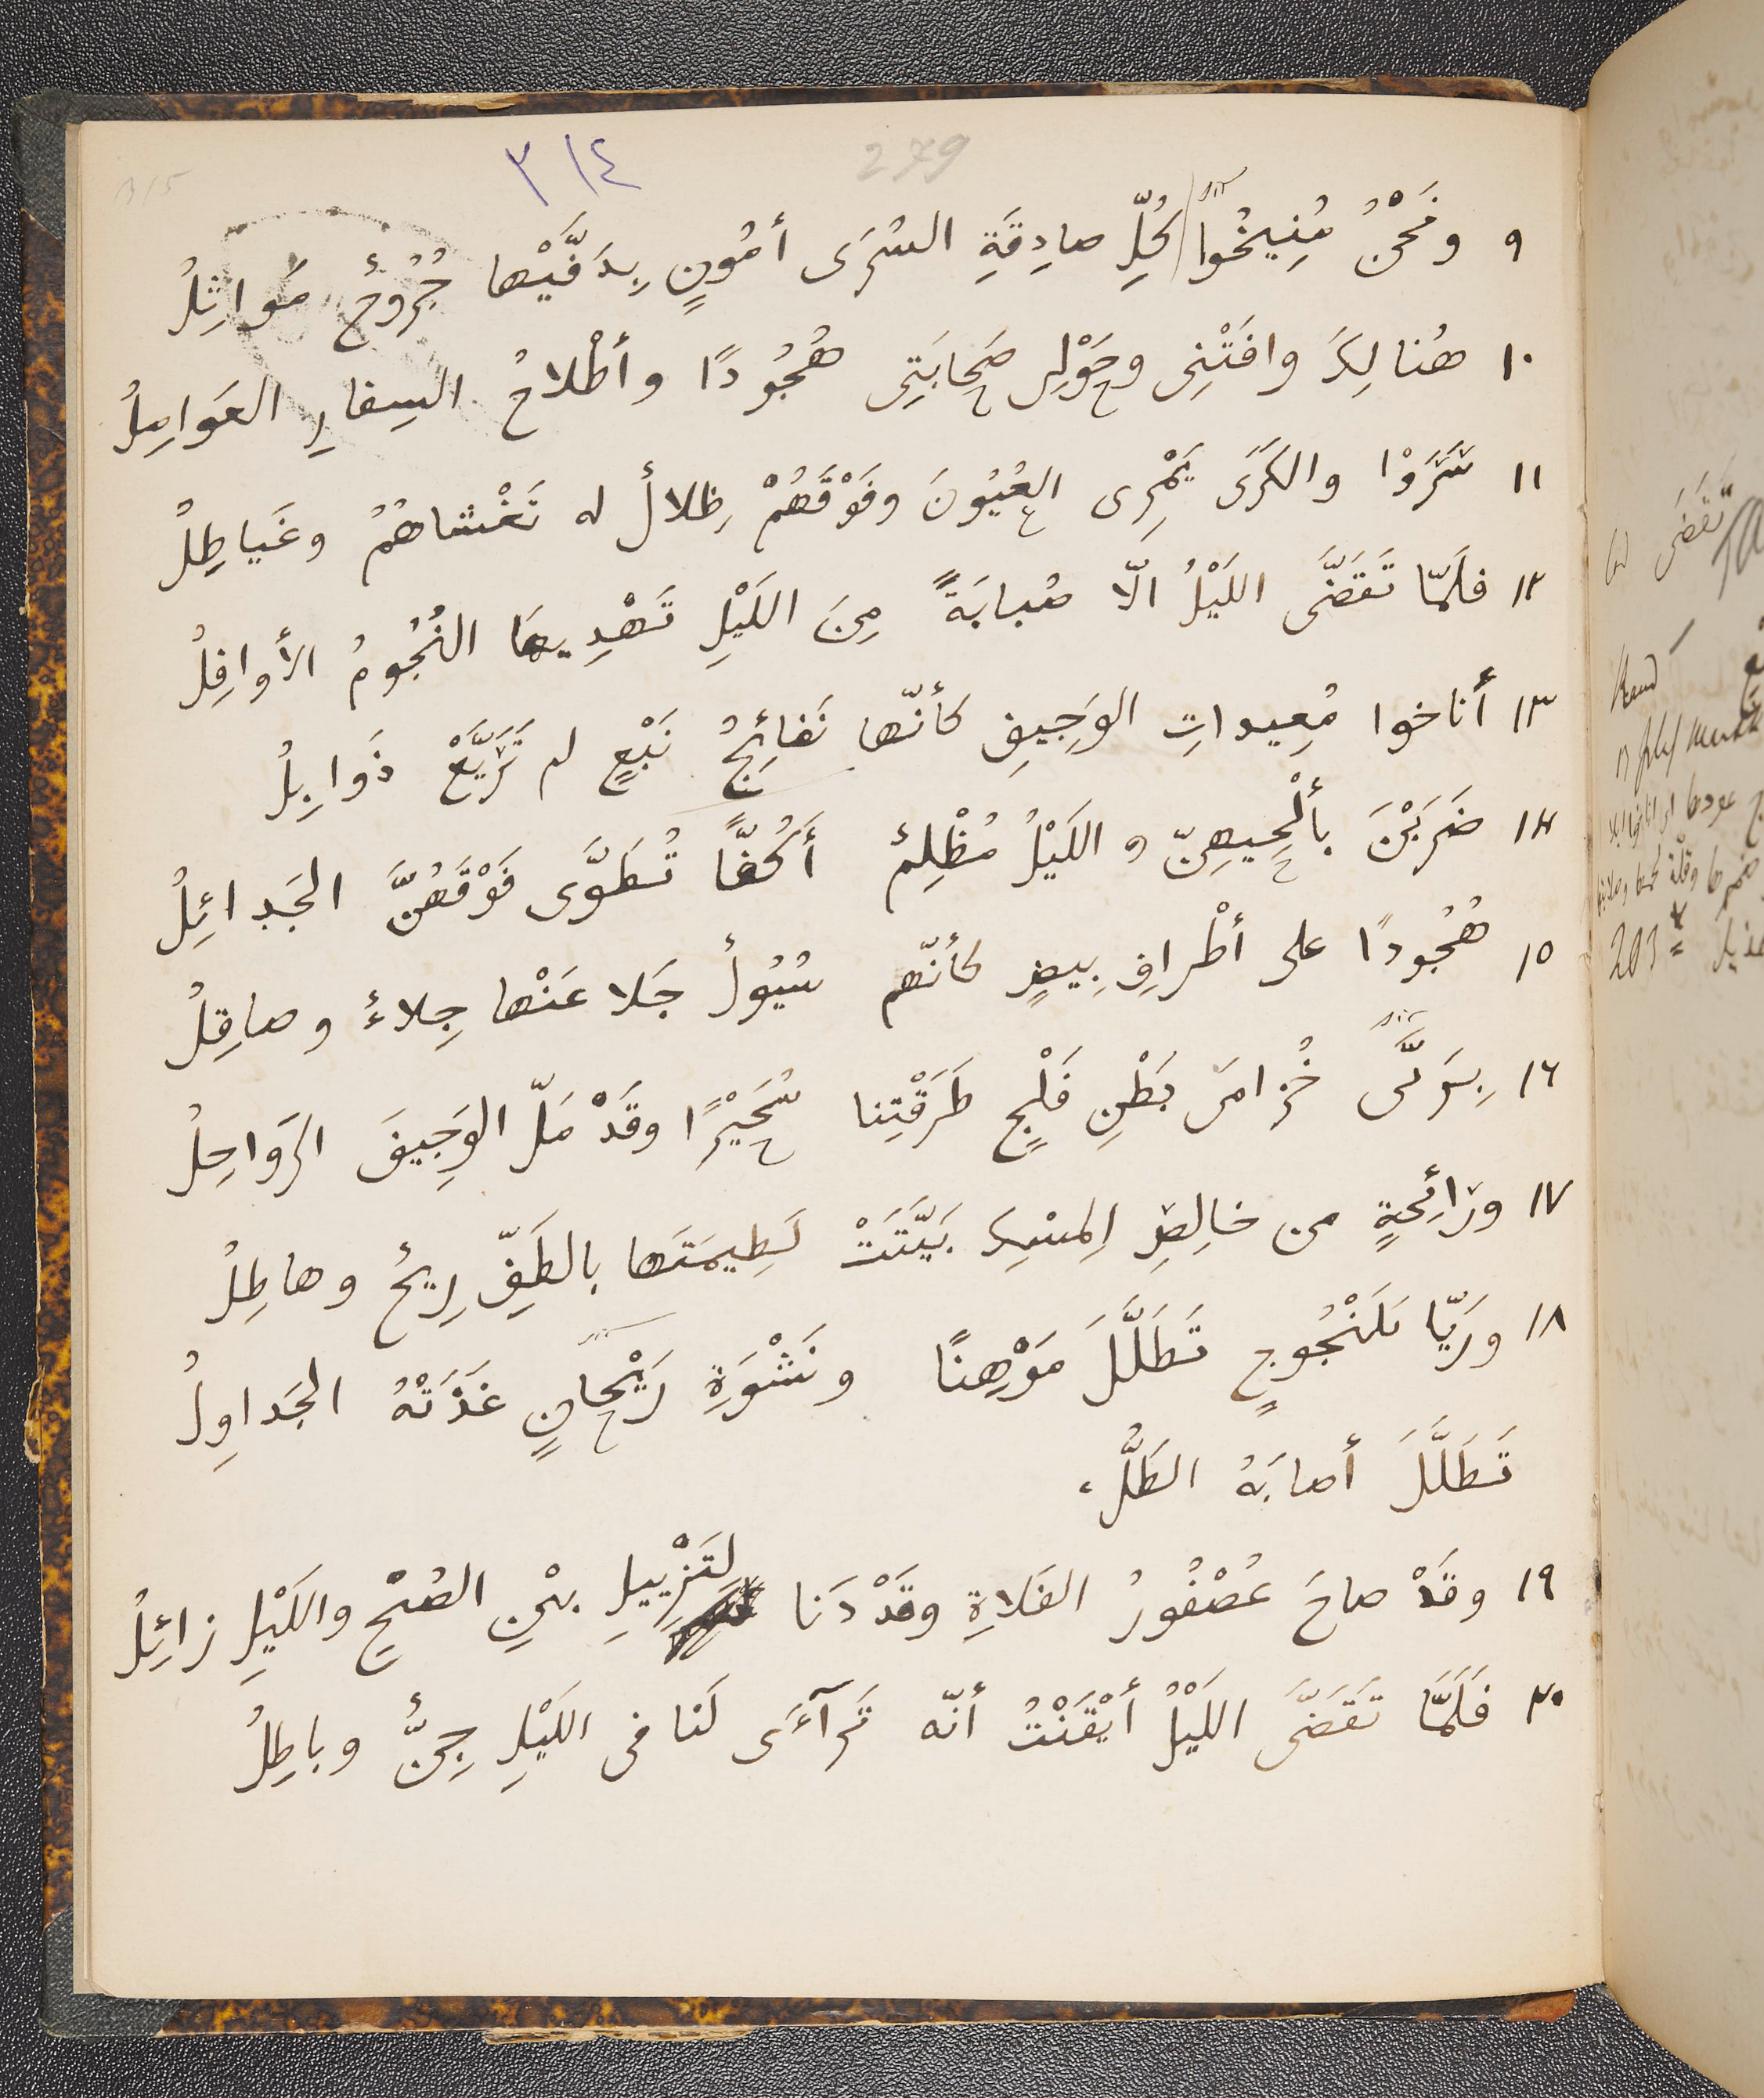 ٣١٤
279
٩ ونَحْنُ مُنِيخُوا كُلِّ صادِقَةِ السُرَى أمُونٍ بِدَفَّيْها جُرُوحٌ مَواثِلُ
١٠ هُنالِكَ وافَتْنِى وحَوْلِى صَحابَتِى هُجُودًا وأطْلاحُ السِفارِ العَوامِلُ
١١ سَرَوْا والكَرَى يَمْرِى العُيُونَ وفَوْقَهُمْ ظِلالٌ له تَغْشاهُمُ وغَياطِلُ
١٢ فلَمّا تَقَضَّى اللَيْلُ الّا صُبابَةً مِنَ اللَيْلِ تَهْدِيها النُجُومُ الأوافِلُ
١٣ أناخوا مُعِيداتِ الوَجِيفِ كأنّها نَفائِجُ نَبْعٍ لم تَرَيَّعْ ذَوابِلُ
١٤ ضَرَبْنَ بألْحِيهِنّ واللَيْلُ مُظْلِمٌ أَكُفًّا تُطَوَّى فَوْقَهُنَّ الجَدائِلُ
١٥ هُجُودًا على أطْرافِ بِيضٍ كأنّهم سُيُوفٌ جَلا عَنْها جِلاءٌ وصاقِلُ
١٦ بِرَيَّى خُزامَى بَطْنِ فَلْجٍ طَرَقْتِنا سُحَيْرًا وقَدْ مَلّ الوَجِيفَ الرَواحِلُ
١٧ ورَائِحَةٍ من خالِصِ المِسْكِ بَيَّتَتْ لَطِيمَتَها بالطَفِّ رِيحٌ وهاطِلُ
١٨ ورَيّا يَلَنْجُوجٍ تَطَلَّلَ مَوْهِنًا ونَشْوَةِ رَيْحانٍ غَذَتْهُ الجَداوِلُ
تَطَلَّلَ أصابَهُ الطَلُّ،
١٩ وقَدْ صاحَ عُصْفُورُ الفَلاةِ وقَدْ دَنا لِتَزْيِيلِ بيْنِ الصُبْحِ واللَيْلِ زائِلُ
٢٠ فَلَمَّا تَقَضَّى اللَيْلُ أَيْقَنْتُ أنّه تَرآءَى لَنا فى اللَيْلِ جِنٌّ وباطِلُ
تقضى
203